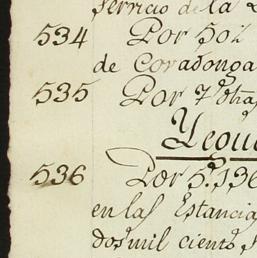 servicio de la
534 Por 50
de Coradonga
535 Por 7 otra
Yegu
536 Por 5.136
en las Estancia
dos mil ciento